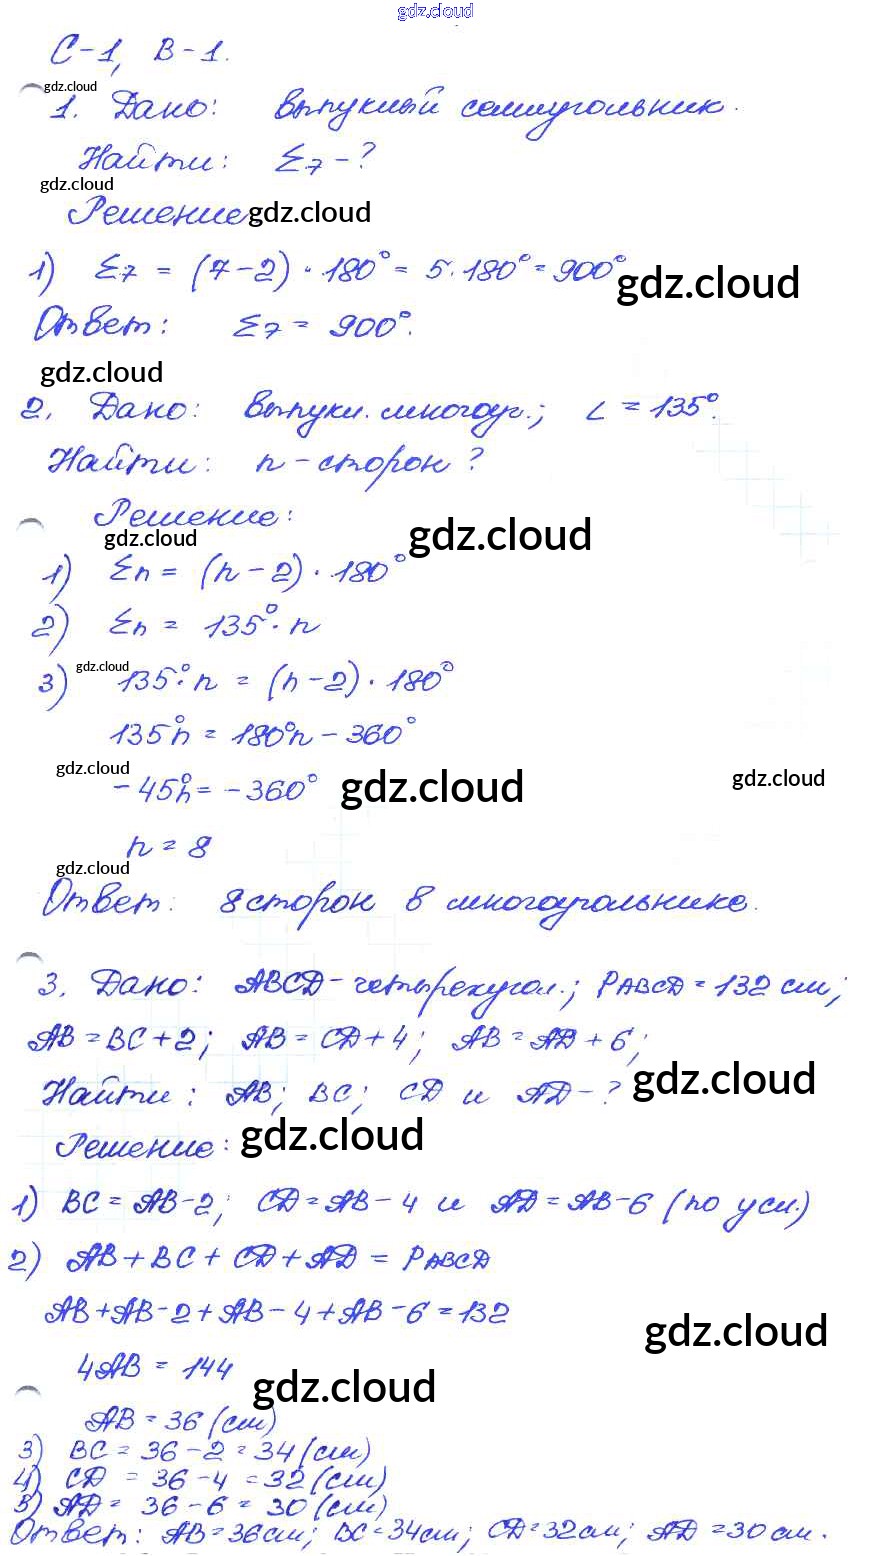 gdz.cloud
С-1, В-1.
gdz.cloud
1. Дано: выпуклый семиугольник.
Найти: Σ7 - ?
gdz.cloud
Решение gdz.cloud
1) Σ7 = (7-2)·180° = 5·180° = 900°
gdz.cloud
Ответ: Σ7 = 900°.
gdz.cloud
2. Дано: выпукл. многоуг.; ∠ = 135°.
Найти: n - сторон ?
Решение:
gdz.cloud gdz.cloud
1) Σn = (n-2)·180°
2) Σn = 135°·n
gdz.cloud
3) 135°·n = (n-2)·180°
135°n = 180°n - 360°
gdz.cloud
-45°n = -360° gdz.cloud gdz.cloud
n = 8
gdz.cloud
Ответ: 8 сторон в многоугольнике.
3. Дано: ABCD - четырехугол.; PABCD = 132 см;
AB = BC + 2; AB = CD + 4; AB = AD + 6;
Найти: AB; BC; CD и AD - ? gdz.cloud
Решение: gdz.cloud
1) BC = AB - 2; CD = AB - 4 и AD = AB - 6 (по усл.)
2) AB + BC + CD + AD = PABCD
AB + AB - 2 + AB - 4 + AB - 6 = 132
gdz.cloud
4AB = 144
gdz.cloud
AB = 36 (см)
3) BC = 36 - 2 = 34 (см)
4) CD = 36 - 4 = 32 (см)
5) AD = 36 - 6 = 30 (см)
Ответ: AB = 36 см; BC = 34 см; CD = 32 см; AD = 30 см.